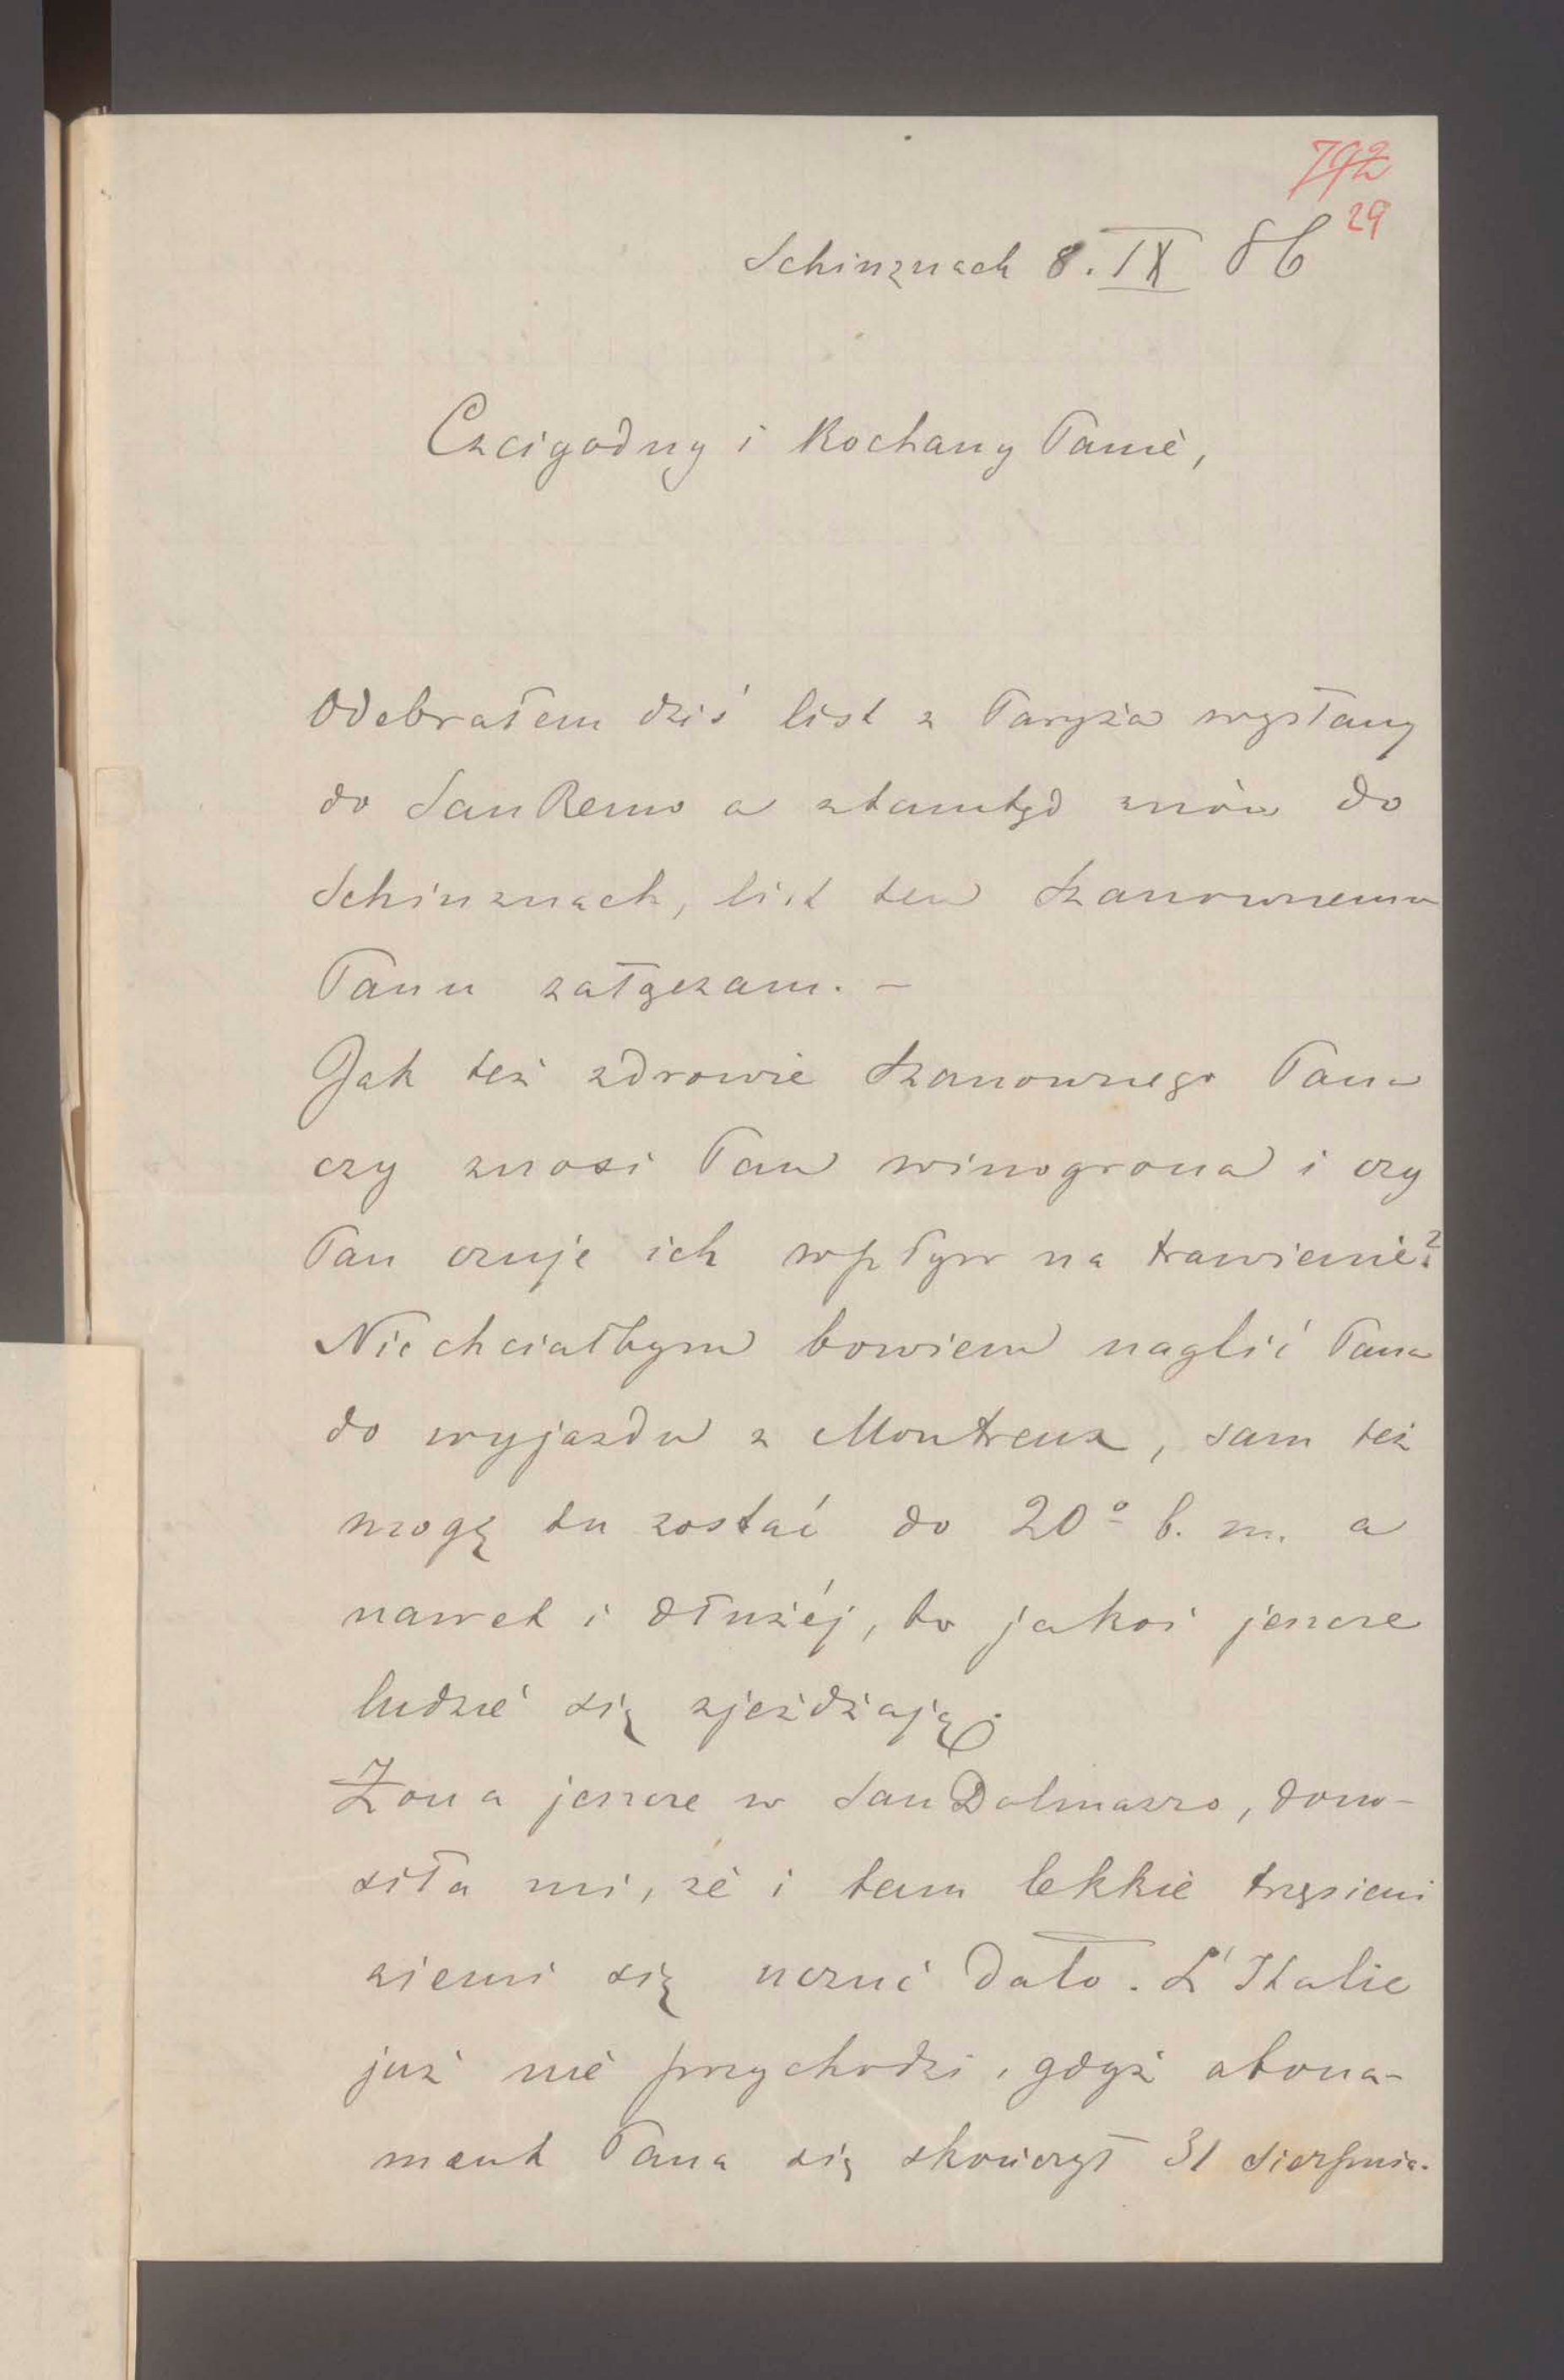 792
29
Schinznach 8. IX 86
Czcigodny i Kochany Panie,
Odebrałem dziś list z Paryża wysłany
do San Remo a ztamtąd znów do
Schinznach, list ten Szanownemu
Panu załączam. –
Jak też zdrowie Szanownego Pana
czy znosi Pan winogrona i czy
Pan czuje ich wpływ na trawienie?
Niechciałbym bowiem naglić Pana
do wyjazdu z Montreux, sam też
mogę tu zostać do 20º b. m. a
nawet i dłużéj, bo jakoś jeszcze
ludzie się zjeżdżają.
Żona jeszcze w San Dalmazzo, dono-
siła mi, że i tam lekkie trzęsieni
ziemi się uczuć dało. L'Italie
już nie przychodzi, gdyż abona-
ment Pana się skończył 31 Sierpnia.